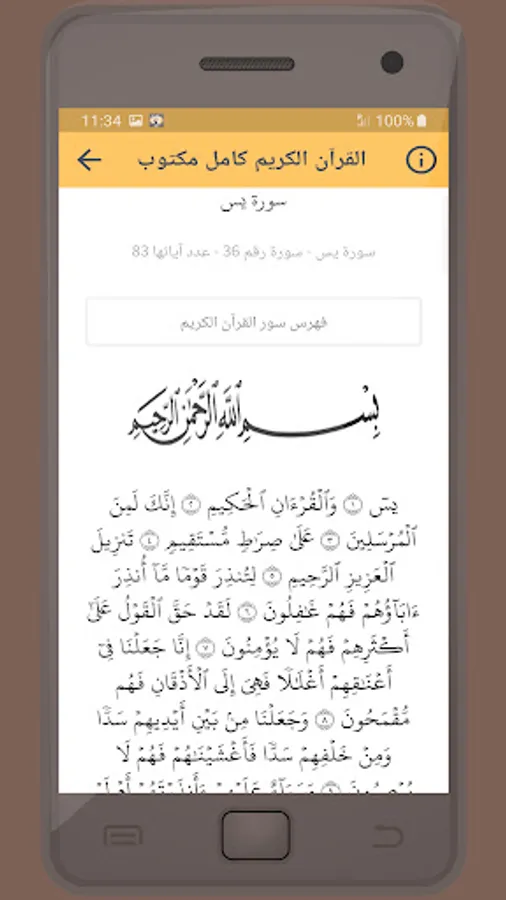 11:34 100%
القرآن الكريم كامل مكتوب
سورة يس
سورة يس - سورة رقم 36 - عدد آياتها 83
فهرس سور القرآن الكريم
بِسْمِ ٱللَّهِ ٱلرَّحْمَٰنِ ٱلرَّحِيمِ
يسٓ ١ وَٱلْقُرْءَانِ ٱلْحَكِيمِ ٢ إِنَّكَ لَمِنَ
ٱلْمُرْسَلِينَ ٣ عَلَىٰ صِرَٰطٍ مُّسْتَقِيمٍ ٤ تَنزِيلَ
ٱلْعَزِيزِ ٱلرَّحِيمِ ٥ لِتُنذِرَ قَوْمًا مَّآ أُنذِرَ
ءَابَآؤُهُمْ فَهُمْ غَٰفِلُونَ ٦ لَقَدْ حَقَّ ٱلْقَوْلُ عَلَىٰٓ
أَكْثَرِهِمْ فَهُمْ لَا يُؤْمِنُونَ ٧ إِنَّا جَعَلْنَا فِىٓ
أَعْنَٰقِهِمْ أَغْلَٰلًا فَهِىَ إِلَى ٱلْأَذْقَانِ فَهُم
مُّقْمَحُونَ ٨ وَجَعَلْنَا مِنۢ بَيْنِ أَيْدِيهِمْ سَدًّا
وَمِنْ خَلْفِهِمْ سَدًّا فَأَغْشَيْنَٰهُمْ فَهُمْ لَا